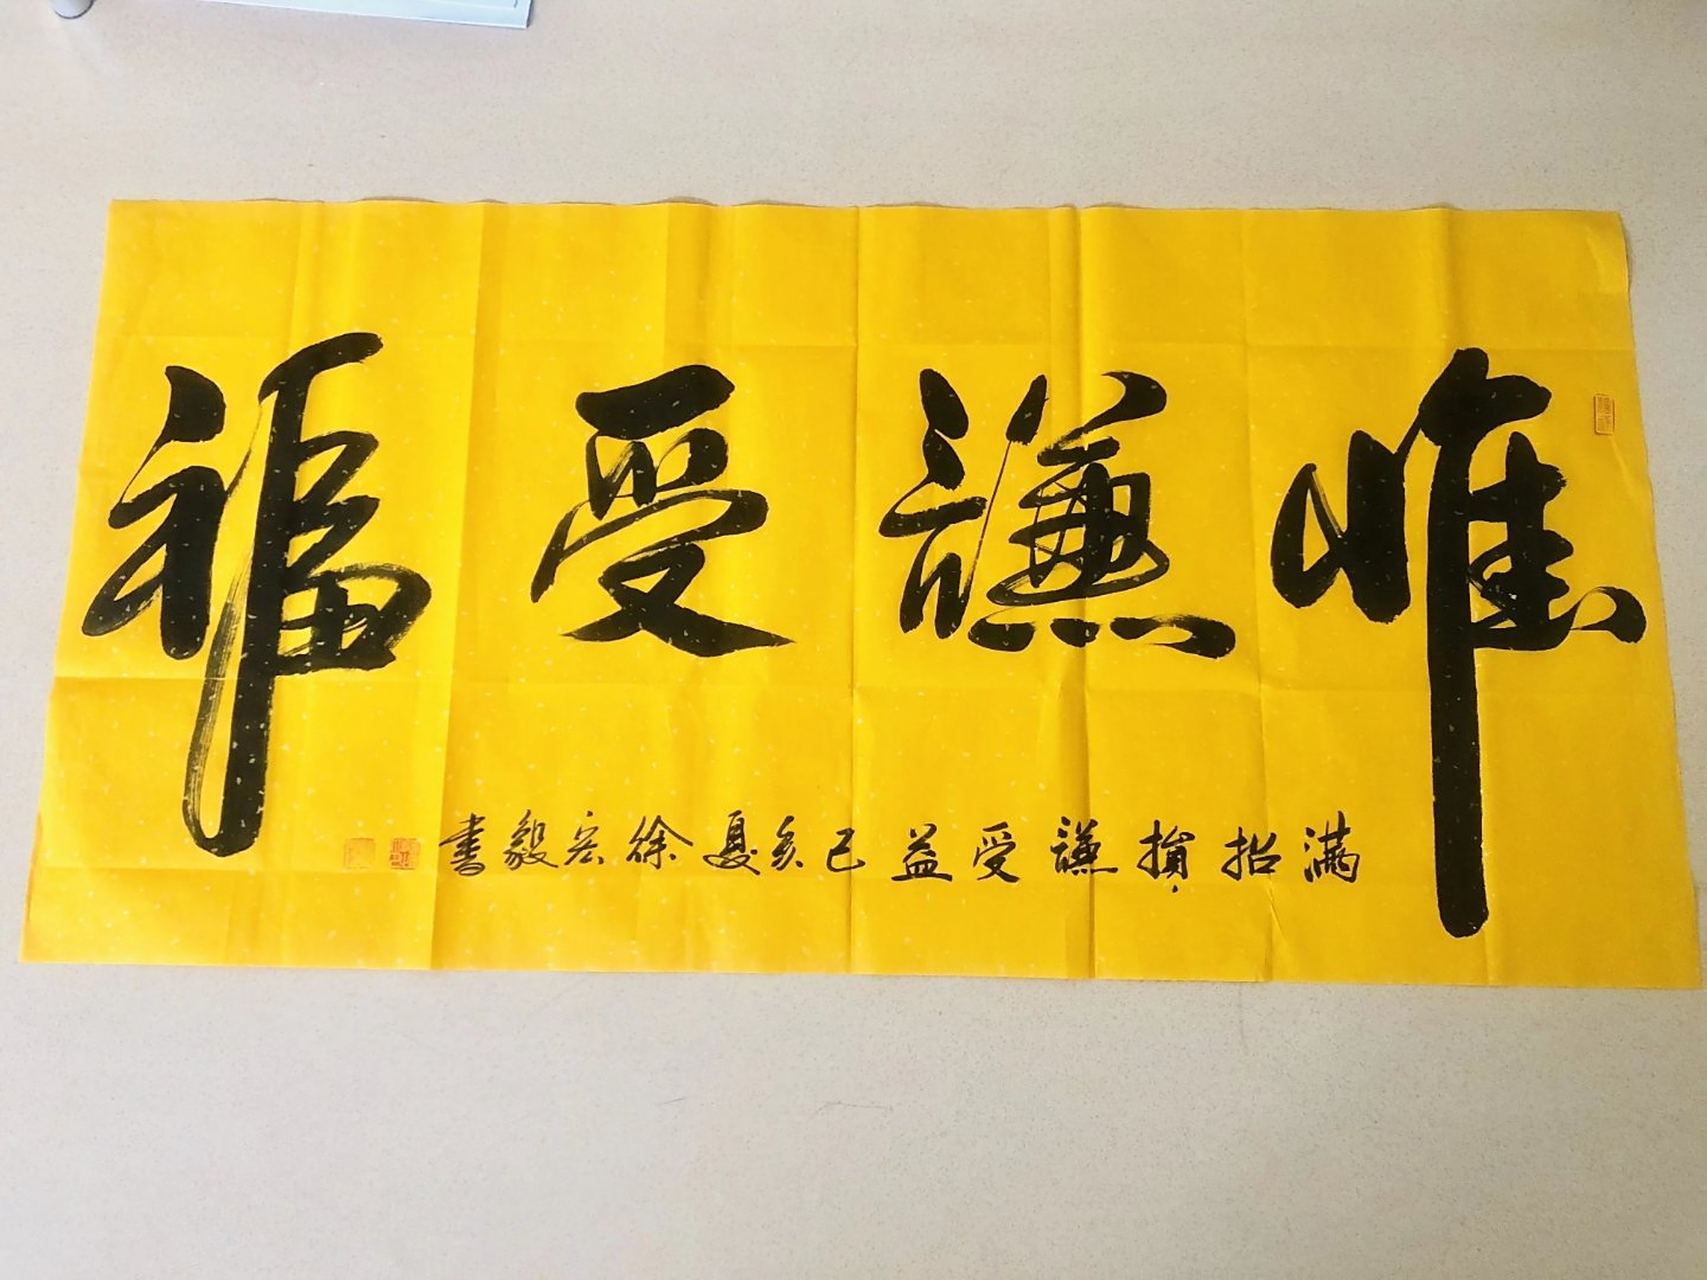 惟謙受福
滿招損謙受益己亥夏徐宏毅書